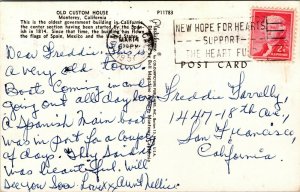 OLD CUSTOM HOUSE
Monterey, California
This is the oldest government building in California,
the center section having been started by the Spanish
in 1814. Since that time, the building has flown
the flags of Spain, Mexico and the United States.
P11783
NEW HOPE FOR HEARTS
SUPPORT
THE HEART FUND
POST CARD
Dear Freddie: This is
a very old town.
Boats Coming in and
going out all day long
a Spanish Main boat
was in port for a Couple
of days. They said it
was beautiful. Will
see you Soon Love xx Aunt Nellie
Freddie Farrelly,
1447-18th Ave,
San Francisco,
California.